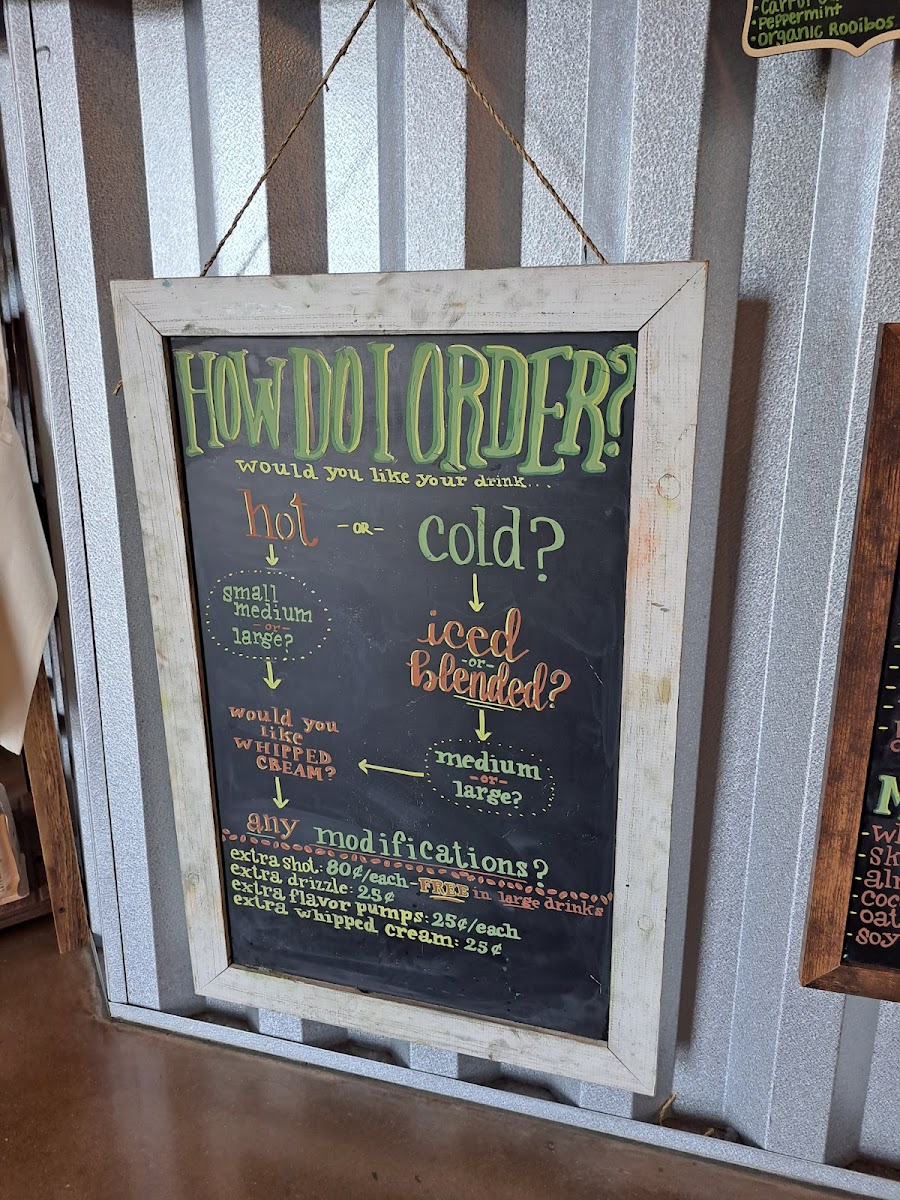 Peppermint
Organic Rooibos
HOW DO I ORDER?
would you like your drink...
hot -OR- cold?
small
medium
-or-
large?
iced
-or-
blended?
would you
like
WHIPPED
CREAM?
medium
-or-
large?
any modifications?
extra shot: 80¢/each-FREE in large drinks
extra drizzle: 25¢
extra flavor pumps: 25¢/each
extra whipped cream: 25¢
soy